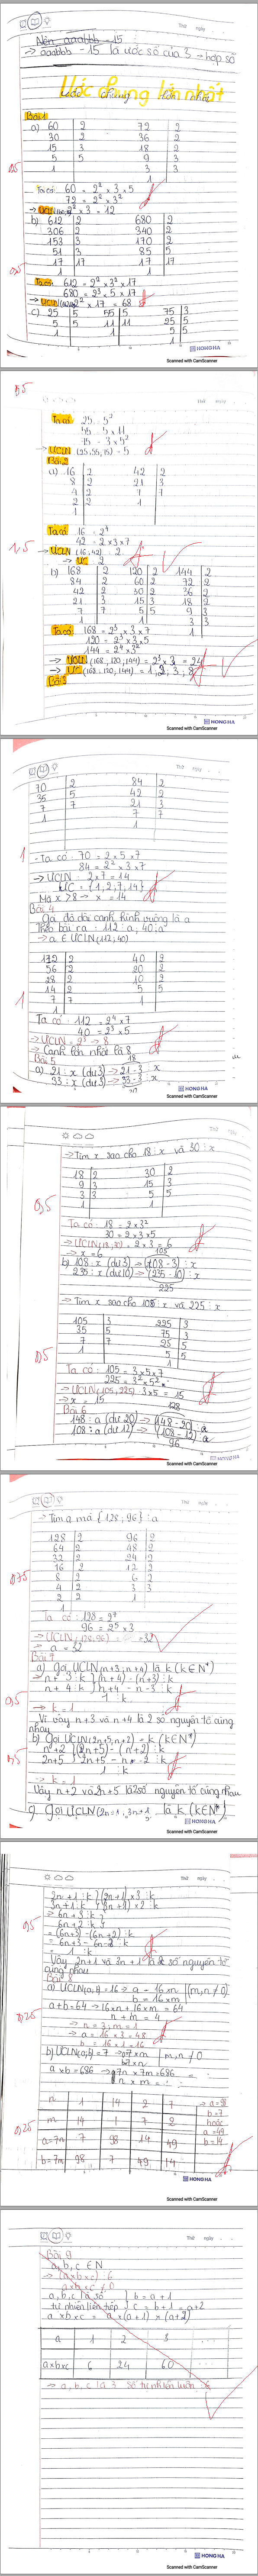 Nên aaabbb - 15
→ aaabbb - 15 là ước số của 3 → hợp số
Ước chung lớn nhất
Bài 1
a) 60 | 2 72 | 2
30 | 2 36 | 2
15 | 3 18 | 2
5 | 5 9 | 3
1 3 | 3
1
Ta có: 60 = 2² × 3 × 5
72 = 2³ × 3²
2² × 3 = 12
b) 612 | 2 680 | 2
306 | 2 340 | 2
153 | 3 170 | 2
51 | 3 85 | 5
17 | 17 17 | 17
1 1
Ta có: 612 = 2² × 3² × 17
680 = 2³ × 5 × 17
2² × 17 = 68
c) 25 | 5 55 | 5 75 | 3
5 | 5 11 | 11 25 | 5
1 1 5 | 5
1
HONG HA
Scanned with CamScanner
0,5
Thứ ngày
Ta có 25 = 5²
55 = 5 × 11
75 = 3 × 5²
→ ƯCLN (25,55,75) = 5
Bài 2
a) 16 | 2 42 | 2
8 | 2 21 | 3
4 | 2 7 | 7
2 | 2 1
1
Ta có 16 = 2⁴
42 = 2 × 3 × 7
→ ƯCLN (16,42) = 2
→ ƯC = 2
1,5
b) 168 | 2 120 | 2 144 | 2
84 | 2 60 | 2 72 | 2
42 | 2 30 | 2 36 | 2
21 | 3 15 | 3 18 | 2
7 | 7 5 | 5 9 | 3
1 1 3 | 3
1
Ta có 168 = 2³ × 3 × 7
120 = 2³ × 3 × 5
144 = 2⁴ × 3²
→ ƯCLN (168,120,144) = 2³ × 3 = 24
→ ƯC (168,120,144) = 1, 2, 3, 8
Bài 3
HONG HA
Scanned with CamScanner
Thứ ngày
70 | 2 84 | 2
35 | 5 42 | 2
7 | 7 21 | 3
1 7 | 7
1
1
- Ta có: 70 = 2 × 5 × 7
84 = 2² × 3 × 7
→ ƯCLN = 2 × 7 = 14
ƯC = {1, 2, 7, 14}
Mà x > 8 → x = 14
Bài 4
Gọi độ dài cạnh hình vuông là a
Theo bài ra: 112 ⋮ a; 40 ⋮ a
→ a ∈ ƯCLN (112, 40)
112 | 2 40 | 2
56 | 2 20 | 2
28 | 2 10 | 2
14 | 2 5 | 5
7 | 7 1
1
1
Ta có 112 = 2⁴ × 7
40 = 2³ × 5
→ ƯCLN = 2³ → 8
→ Cạnh lớn nhất là 8
Bài 5
18
a) 21 ⋮ x (dư 3) → 21 - 3 ⋮ x
33 ⋮ x (dư 3) → 33 - 3 ⋮ x
30
HONG HA
Scanned with CamScanner
Thứ ngày
→ Tìm x sao cho 18 ⋮ x và 30 ⋮ x
18 | 2 30 | 2
9 | 3 15 | 3
3 | 3 5 | 5
1 1
0,5
Ta có: 18 = 2 × 3²
30 = 2 × 3 × 5
→ ƯCLN (18,30) = 2 × 3 = 6
→ x = 6
105
b) 108 ⋮ x (dư 3) → (108 - 3) ⋮ x
235 ⋮ x (dư 10) → (235 - 10) ⋮ x
225
→ Tìm x sao cho 105 ⋮ x và 225 ⋮ x
105 | 3 225 | 3
35 | 5 75 | 3
7 | 7 25 | 5
1 5 | 5
1
0,5
Ta có: 105 = 3 × 5 × 7
225 = 3² × 5²
→ ƯCLN (105,225) 3 × 5 = 15
→ x = 15
Bài 6
128
148 ⋮ a (dư 20) → (148 - 20) ⋮ a
108 ⋮ a (dư 12) → (108 - 12) ⋮ a
96
HONG HA
Scanned with CamScanner
Thứ ngày
→ Tìm a mà {128; 96} ⋮ a
128 | 2 96 | 2
64 | 2 48 | 2
32 | 2 24 | 2
16 | 2 12 | 2
8 | 2 6 | 2
4 | 2 3 | 3
2 | 2 1
1
0,75
Ta có: 128 = 2⁷
96 = 2⁵ × 3
→ ƯCLN (128,96) = 32
→ a = 32
Bài 7
a) Gọi ƯCLN (n+3; n+4) là k (k∈N*)
→ n + 3 ⋮ k } (n+4) - (n+3) ⋮ k
n + 4 ⋮ k } n+4 - n-3 ⋮ k
1 ⋮ k
→ k = 1
0,5
Vì vậy n+3 và n+4 là 2 số nguyên tố cùng
nhau
b) Gọi ƯCLN (2n+5, n+2) = k (k∈N*)
n+2 ⋮ k
2n+5 ⋮ k
1 ⋮ k
→ k = 1
Vậy n+2 và 2n+5 là 2 số nguyên tố cùng nhau
Gọi ƯCLN (2n+1, 3n+1) là k (k∈N*)
HONG HA
Scanned with CamScanner
Thứ ngày
2n+1 ⋮ k } (2n+1) × 3 ⋮ k
3n+1 ⋮ k } (3n+1) × 2 ⋮ k
= 6n+3 ⋮ k
6n+2 ⋮ k
0,5
= (6n+3) - (6n+2) ⋮ k
= 6n+3 - 6n-2 ⋮ k
= 1 ⋮ k
Vậy 2n+1 và 3n+1 là 2 số nguyên tố
cùng nhau
Bài 8
a) ƯCLN (a,b) = 16 → a = 16 × n (m,n ≠ 0)
b = 16 × m
a+b = 64 → 16×n + 16×m = 64
n + m = 4
→ n = 3; m = 1
→ a = 16 × 3 = 48
b = 16 × 1 = 16
0,25
b) ƯCLN (a,b) = 7
m, n ≠ 0
a × b = 686 → 7n × 7m = 686
n × m =
n | 1 | 14 | 2 | 7
m | 14 | 1 | 7 | 2
a=7n | 7 | 98 | 14 | 49
b=7m | 98 | 7 | 49 | 14
→ a = 98
b = 7
hoặc
a = 49
b = 14
0,25
HONG HA
Scanned with CamScanner
Thứ ngày
Bài 9
a, b, c ∈ N
→ (a×b×c) ⋮ 6
a×b×c ≠ 0
a, b, c là số } b = a + 1
tự nhiên liên tiếp } c = b + 1 = a+2
a × b × c = a × (a+1) × (a+2)
a | 1 | 2 | 3 | ...
a×b×c | 6 | 24 | 60 | ...
→ a, b, c là 3 số tự nhiên luôn ⋮ 6
HONG HA
Scanned with CamScanner